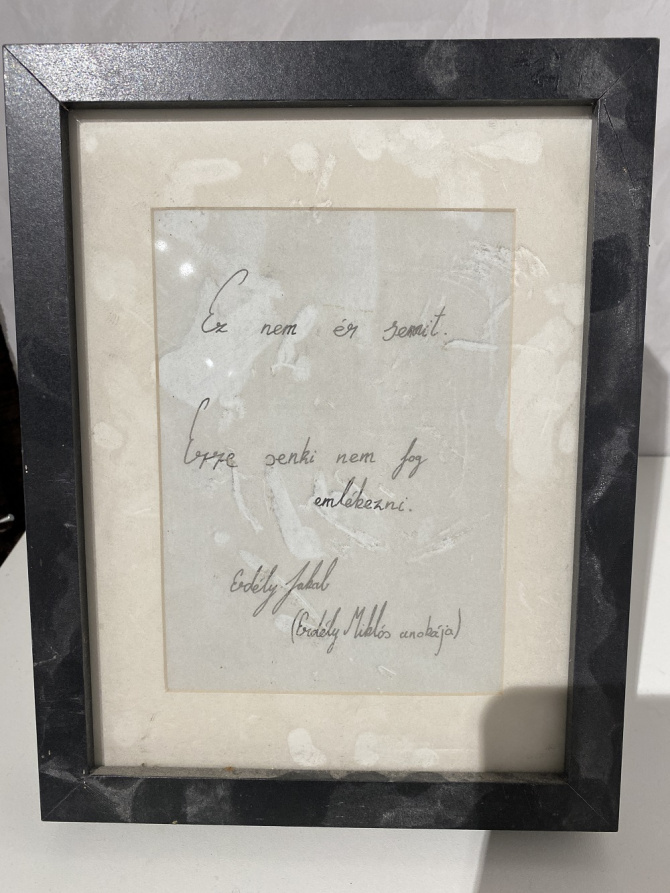 Ez nem ér semit.
Erre senki nem fog
emlékezni.
Erdély Jakab
(Erdély Miklós unokája)